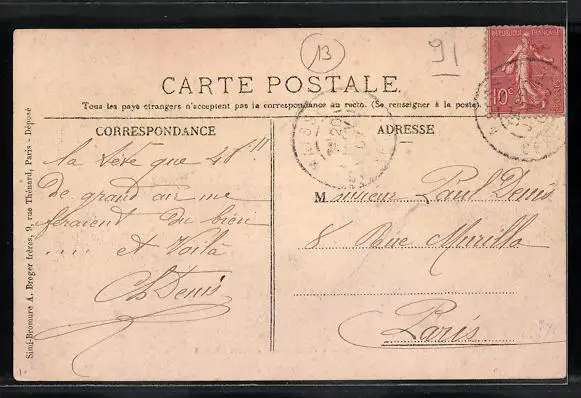 13
91
RÉPUBLIQUE FRANÇAISE
10c
CARTE POSTALE.
Tous les pays étrangers n'acceptent pas la correspondance au recto. (Se renseigner à la poste).
CORRESPONDANCE
ADRESSE
que 48h !!!
De grand air me
feraient du bien
.... et Voilà
Ch Denis
Monsieur Paul Denis
8 Rue Murillo
Paris
Simi-Bromure A. Breger frères, 9, rue Thénard, Paris - Déposé